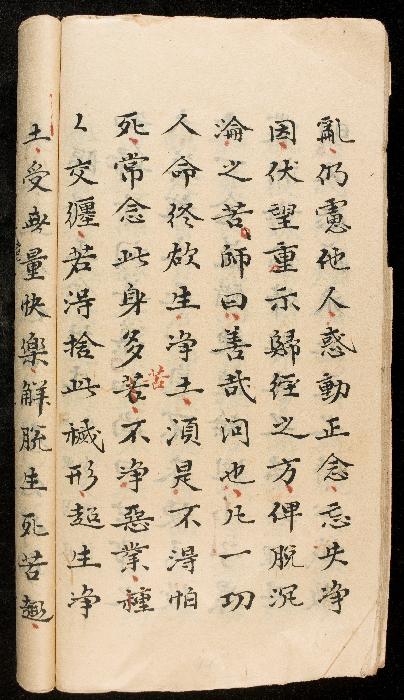 亂仍慮他人惑動正念忘失淨
因伏望重示歸徑之方俾脫沉
淪之苦師曰善哉問也凡一切
人命終欲生淨土須是不得怕
死常念此身多苦不淨惡業種
〻交纏若得捨此穢形超生淨
土受無量快樂解脫生死苦趣
苦